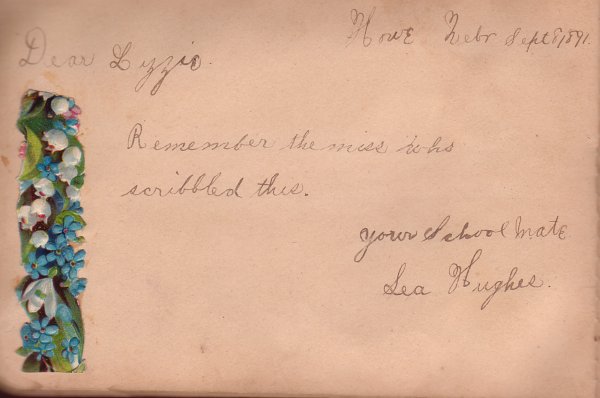 Howe Nebr Sept 8, 1891.
Dear Lyzzie.
Remember the miss who
scribbled this.
your School Mate
Lea Hughes.